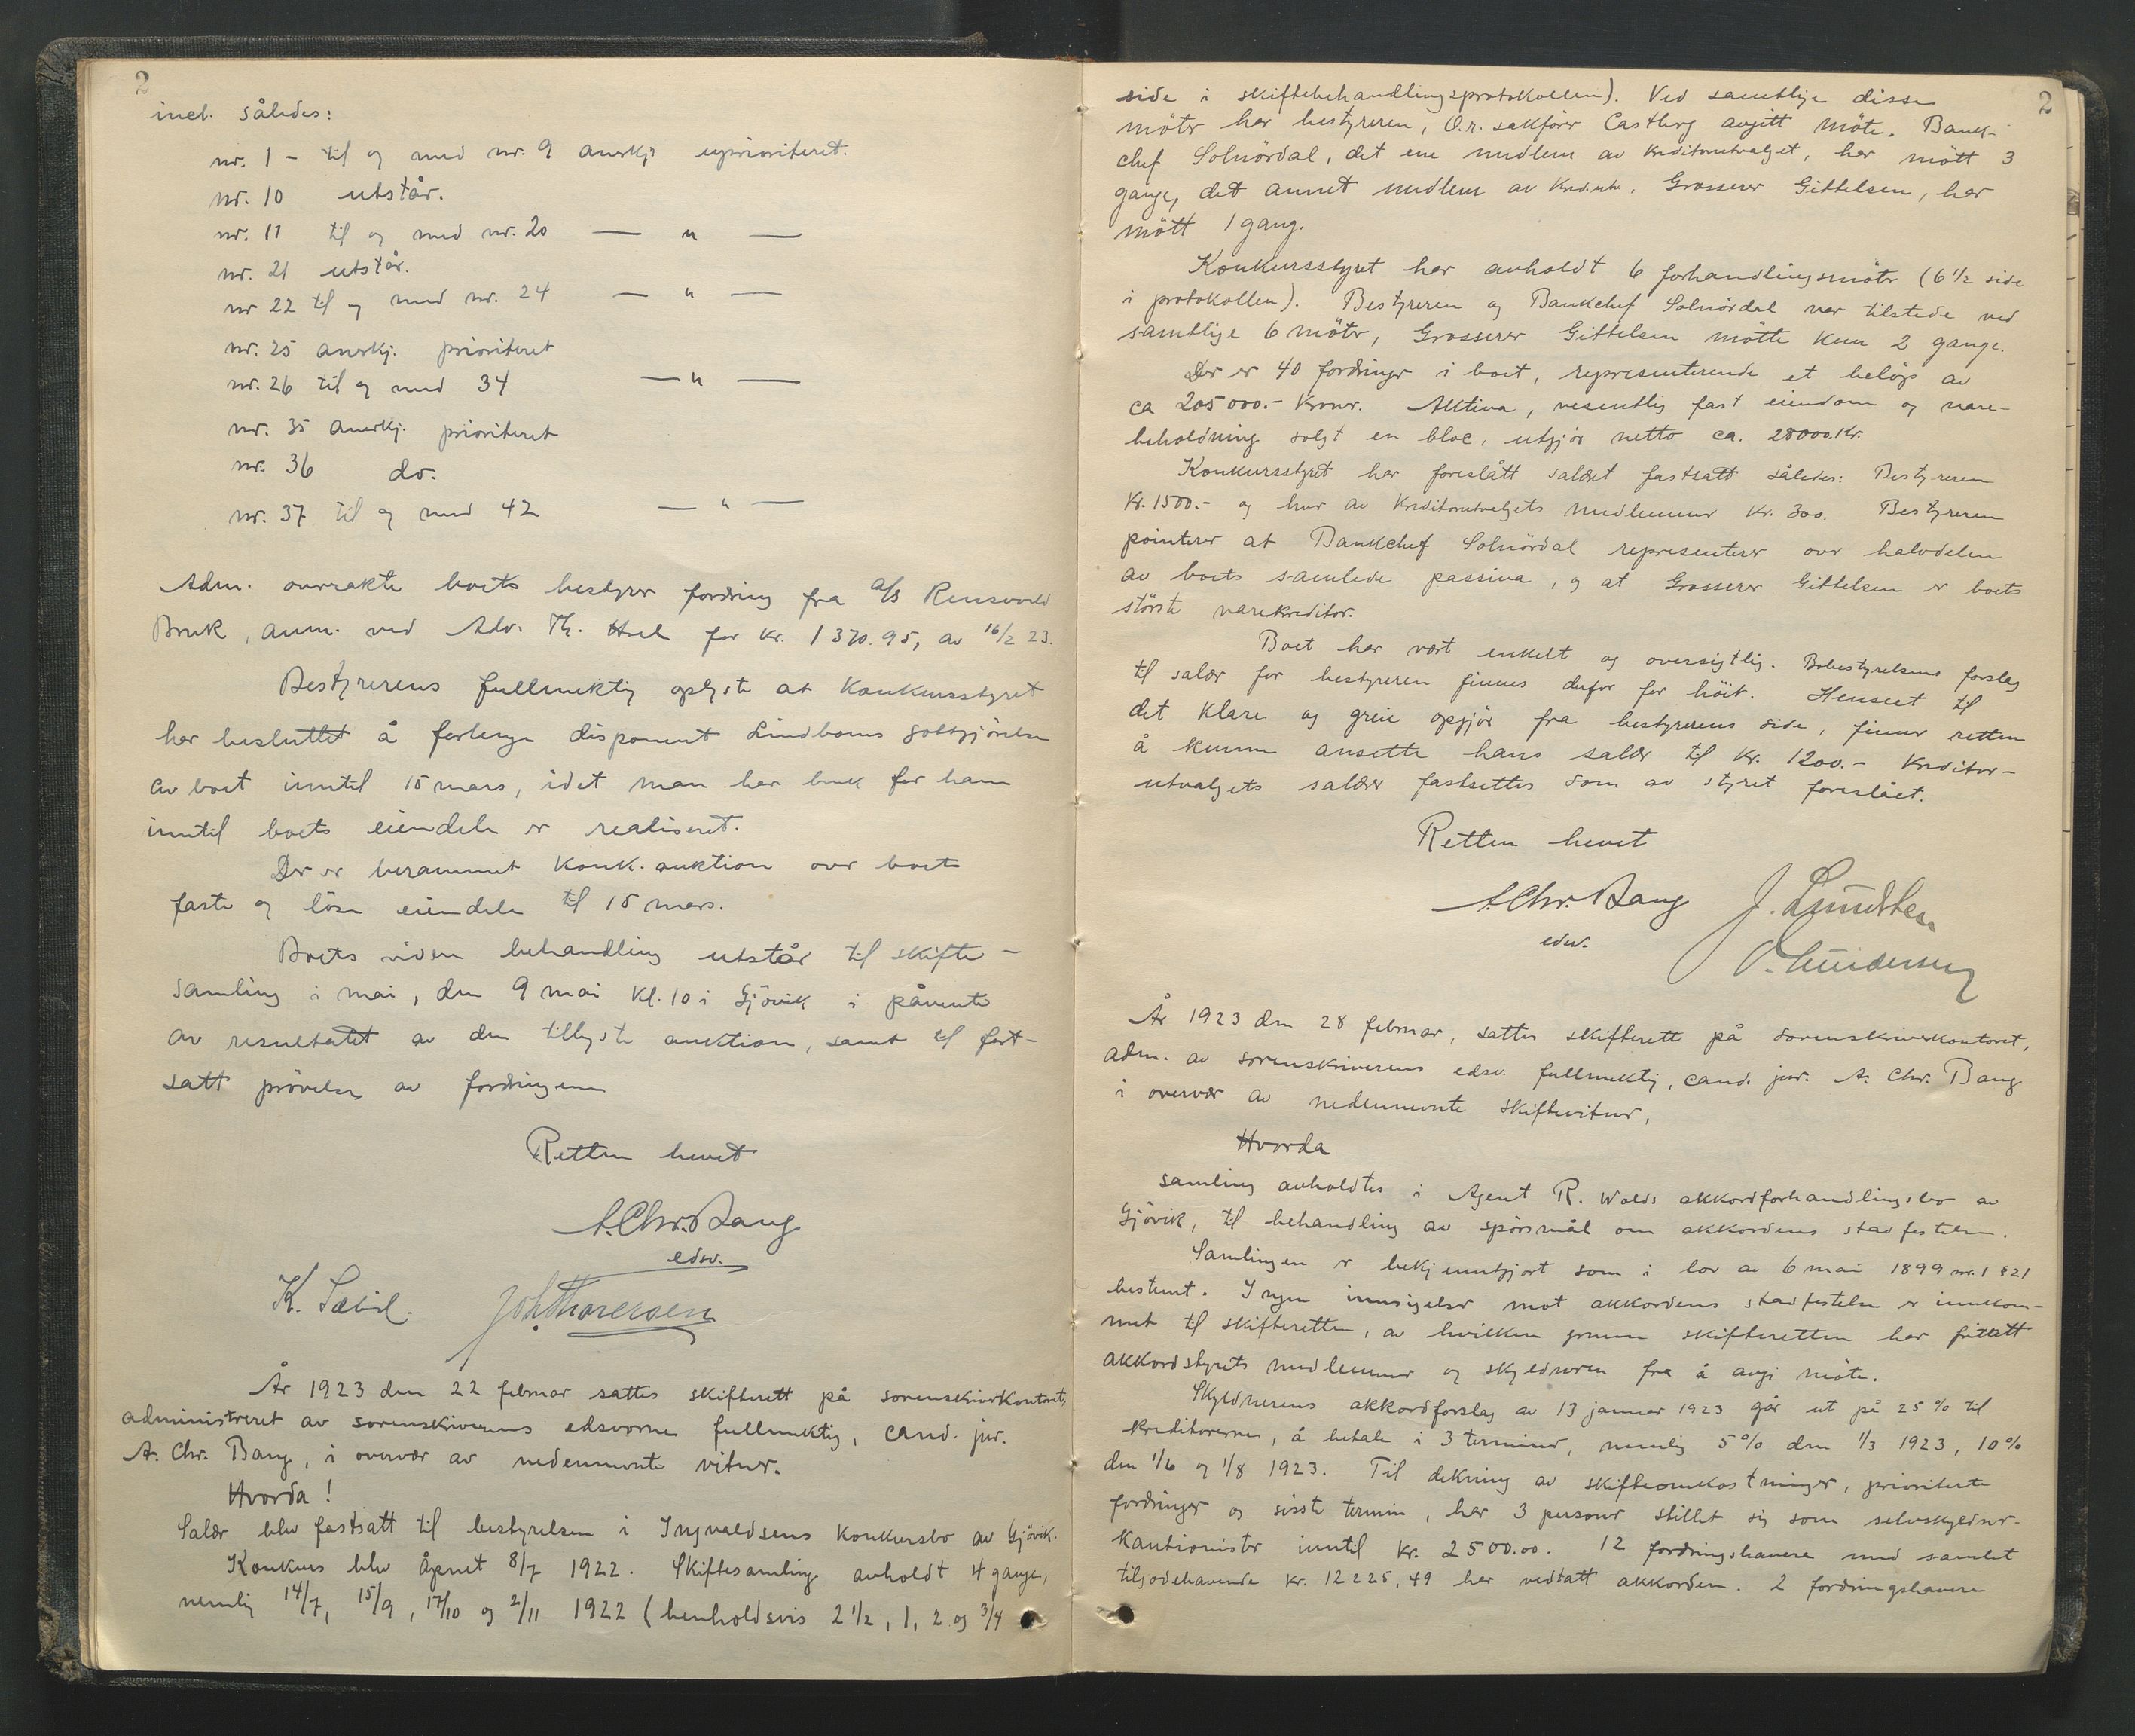 2
incl. således:
nr. 1 - til og med nr. 9 anerkj. uprioriteret.
nr. 10 utstår.
nr. 11 til og med nr. 20 — " —
nr. 21 utstår.
nr 22 til og med nr. 24 — " —
nr. 25 anerkj. prioriteret
nr. 26 til og med 34 — " —
nr. 35 anerkj. prioriteret
nr. 36 do.
nr. 37 til og med 42 — " —
Adm. overrakte boets bestyrer fordring fra A/S
Bruk, anm. ved Adv. Th. for kr. 1370.95, av 16/2 23.
Bestyrerens fullmektig oplyste at Konkursstyret
har besluttet å forlenge disponent Lindboms godtgjörelse
av boet inntil 15 mars, idet man har bruk for ham
inntil boets eiendele er realiseret.
Der er berammet konk. auktion over boets
faste og löse eiendele til 15 mars.
Boets videre behandling utstår til skifte-
samling i mai, den 9 mai kl. 10 i Gjövik i påvente
av resultatet av den tillyste auktion, samt til fort-
satt prövelse av fordringene
Retten hevet
A. Chr. Bang
edsv.
K. Joh Thoresen
År 1923 den 22 februar sattes skifterett på sorenskriverkontoret,
administreret av sorenskriverens edsvorne fullmektig, cand. jur.
A. Chr. Bang, i overvær av nedennevnte vitner.
Hvorda!
Salær blev fastsatt til bestyrelsen i Ingvaldsens konkursbo av Gjövik.
Konkurs blev åpnet 8/7 1922. Skiftesamling avholdt 4 gange,
nemlig 14/7, 15/9, 17/10 og 2/11 1922 (henholdsvis 2 1/2, 1, 2 og 3/4
2
side i skiftebehandlingsprotokollen). Ved samtlige disse
möter har bestyreren, O.r. sakförer Castberg avgitt möte. Bank-
chef Solnördal, det ene medlem av kreditorutvalget, har mött 3
gange, det annet medlem av kred.utv. Grosserer Gittelsen, har
mött 1 gang.
Konkursstyret har avholdt 6 forhandlingsmöter (6 1/2 side
i protokollen). Bestyreren og Bankchef Solnördal var tilstede ved
samtlige 6 möter, Grosserer Gittelsen mötte kun 2 gange.
Der er 40 fordringer i boet, representerende et belöp av
ca 205000.- Kroner. Aktiva, vesentlig fast eiendom og vare-
beholdning solgt en bloc, utgjör netto ca. 28000 Kr.
Konkursstyret har foreslått salæret fastsatt således: Bestyreren
Kr. 1500.- og hver av Kreditorutvalgets medlemmer Kr. 300. Bestyreren
pointerer at Bankchef Solnördal representerer over halvdelen
av boets samlede passiva, og at Grosserer Gittelsen er boets
störste varekreditor.
Boet har vært enkelt og oversigtlig. Bobestyrelsens forslag
til salær for bestyreren finnes derfor for höit. Henseet til
det klare og greie opgjör fra bestyrerens side, finner retten
å kunne ansette hans salær til Kr. 1200.- Kreditor-
utvalgets salærer fastsettes som av styret foreslået.
Retten hevet
A. Chr. Bang
edsv.
År 1923 den 28 februar, sattes skifterett på sorenskriverkontoret,
adm. av sorenskriverens edsv. fullmektig, cand. jur. A. Chr. Bang
i overvær av nedennevnte skiftevitner,
Hvorda
samling avholdtes i Agent R. Wolds akkordforhandlingsbo av
Gjövik, til behandling av spörsmål om akkordens stadfestelse.
Samlingen er bekjenntgjort som i lov av 6 mai 1899 nr. 1 § 21
bestemt. Ingen innsigelser mot akkordens stadfestelse er innkom-
met til skifteretten, av hvilken grunn skifteretten har fritatt
akkordstyrets medlemmer og skyldneren fra å avgi möte.
Skyldnerens akkordforslag av 13 januar 1923 går ut på 25 % til
kreditorerne, å betale i 3 terminer, nemlig 5% den 1/3 1923, 10%
den 1/6 og 1/8 1923. Til dekning av skifteomkostninger, prioriterte
fordringer og siste termin, har 3 personer stillet sig som selvskyldner-
kautionister inntil kr. 2500.00. 12 fordringshavere med samlet
tilgodehavende kr. 12225,49 har vedtatt akkorden. 2 fordringshavere